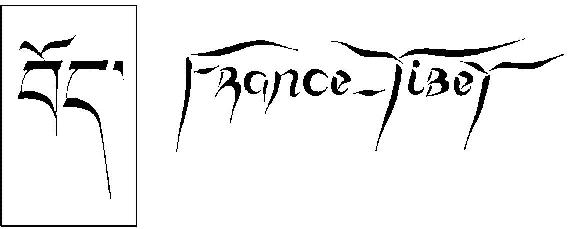 བོད་
France-Tibet